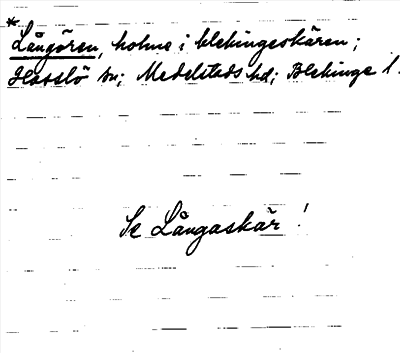 * Långören, holme i blekingeskären;
Hasslö sn; Medelstads hd; Blekinge l.
Se Långaskär!